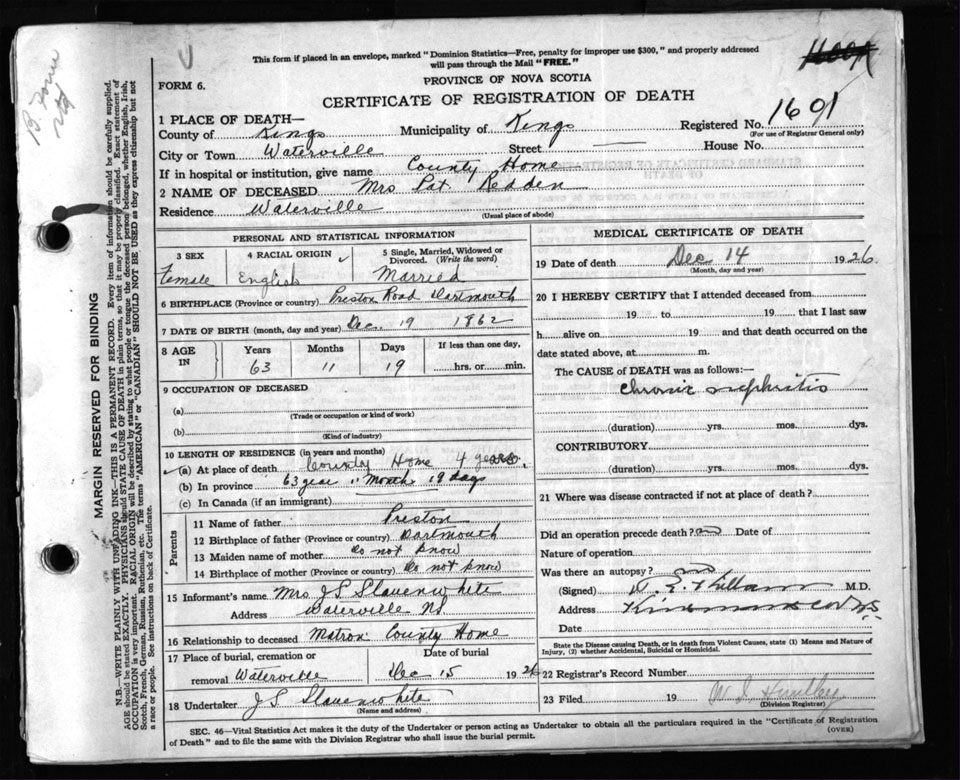 This form if placed in an envelope, marked "Dominion Statistics—Free, penalty for improper use $300," and properly addressed
will pass through the Mail "FREE."
FORM 6.
PROVINCE OF NOVA SCOTIA
CERTIFICATE OF REGISTRATION OF DEATH
1 PLACE OF DEATH—
Registered No. 1691
County of Kings Municipality of Kings
(For use of Registrar General only)
City or Town Waterville Street — House No.
If in hospital or institution, give name County Home
2 NAME OF DECEASED Mrs Pat Redden
Residence Waterville
(Usual place of abode)
PERSONAL AND STATISTICAL INFORMATION
3 SEX 4 RACIAL ORIGIN 5 Single, Married, Widowed or
Divorced. (Write the word)
Female English Married
6 BIRTHPLACE (Province or country) Preston Road Dartmouth
7 DATE OF BIRTH (month, day and year) Dec, 19 1862
8 AGE IN Years Months Days If less than one day,
63 11 19 hrs. or min.
9 OCCUPATION OF DECEASED
(a)
(Trade or occupation or kind of work)
(b)
(Kind of industry)
10 LENGTH OF RESIDENCE (in years and months)
(a) At place of death County Home 4 years
(b) In province 63 year 11 Months 19 days
(c) In Canada (if an immigrant)
Parents
11 Name of father Preston
12 Birthplace of father (Province or country) Dartmouth
13 Maiden name of mother do not know
14 Birthplace of mother (Province or country) do not know
15 Informant's name Mrs J S Slauenwhite
Address Waterville NS
16 Relationship to deceased Matron County Home
17 Place of burial, cremation or Date of burial
removal Waterville Dec 15 1926
18 Undertaker J S Slauenwhite
(Name and address)
MEDICAL CERTIFICATE OF DEATH
19 Date of death Dec 14 1926
(Month, day and year)
20 I HEREBY CERTIFY that I attended deceased from
19 to 19 that I last saw
h alive on 19 and that death occurred on the
date stated above, at m.
The CAUSE of DEATH was as follows:—
Chronic nephritis
(duration) yrs. mos. dys.
CONTRIBUTORY
(duration) yrs. mos. dys.
21 Where was disease contracted if not at place of death?
Did an operation precede death? no Date of
Nature of operation
Was there an autopsy? no
(Signed) M.D.
Address
Date
State the Disease causing Death, or in death from Violent Causes, state (1) Means and Nature of
Injury, (2) whether Accidental, Suicidal or Homicidal.
22 Registrar's Record Number
23 Filed 19
(Division Registrar)
SEC. 46—Vital Statistics Act makes it the duty of the Undertaker or person acting as Undertaker to obtain all the particulars required in the "Certificate of Registration
of Death" and to file the same with the Division Registrar who shall issue the burial permit.
(OVER)
MARGIN RESERVED FOR BINDING
N.B.—WRITE PLAINLY WITH UNFADING INK—THIS IS A PERMANENT RECORD. Every item of information should be carefully supplied.
AGE should be stated EXACTLY. PHYSICIANS should STATE CAUSE OF DEATH in plain terms, so that it may be properly classified. Exact statement of
OCCUPATION is very important. RACIAL ORIGIN will be described by stating to what people or tongue the deceased person belonged, whether English, Irish,
Scotch, French, German, Russian, Ruthenian, etc. The terms "AMERICAN" or "CANADIAN" SHOULD NOT BE USED as they express citizenship but not
a race or people. See instructions on back of Certificate.